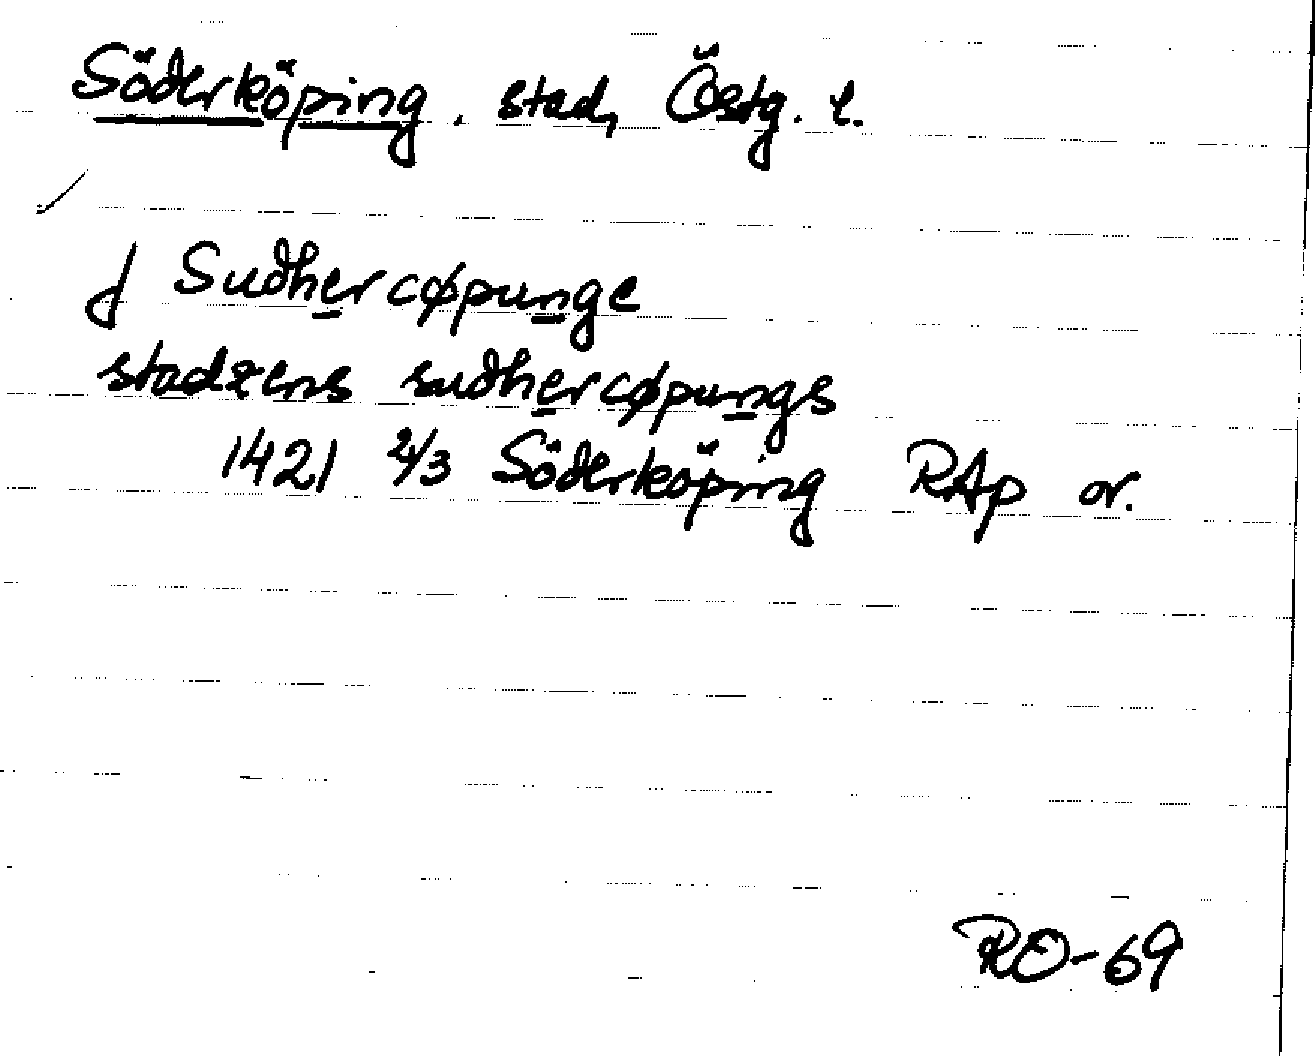 Söderköping. stad, Östg. l.
J Sudhercøpunge
stadzens sudhercøpungs
1421 2/3 Söderköping RAp or.
RO-69